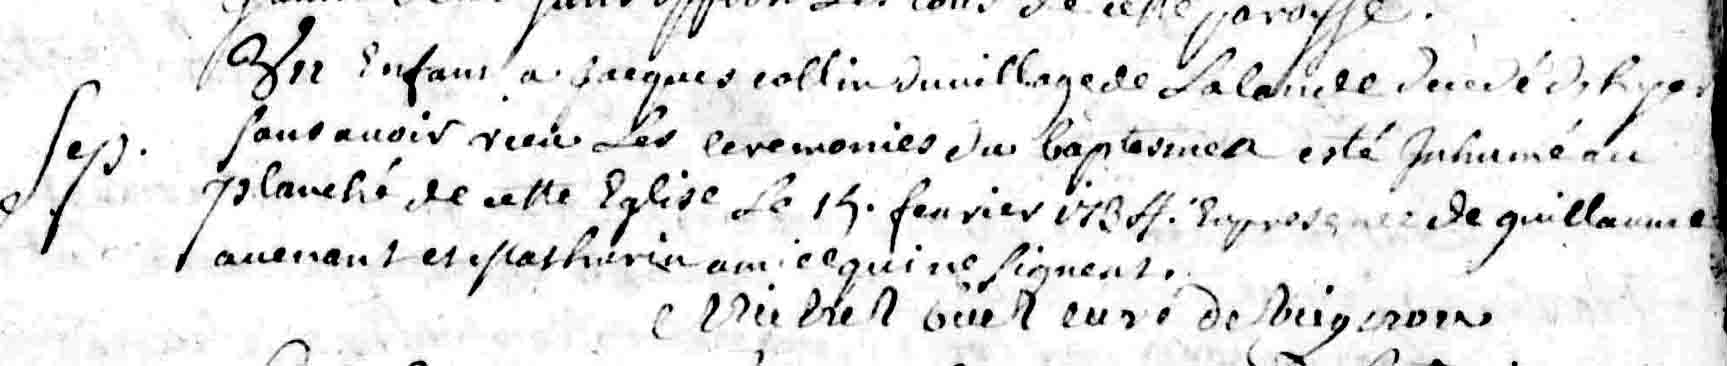 de cette paroisse.
Un Enfant a Jacques collin du village de Lalande decedé d'hyer
Sep. sans avoir reçu Les ceremonies du baptesme a esté Inhumé au
planché de cette Eglise Le 15. fevrier En presence de guillaume
avenant et Mathurin amice qui ne signent.
Michel curé de